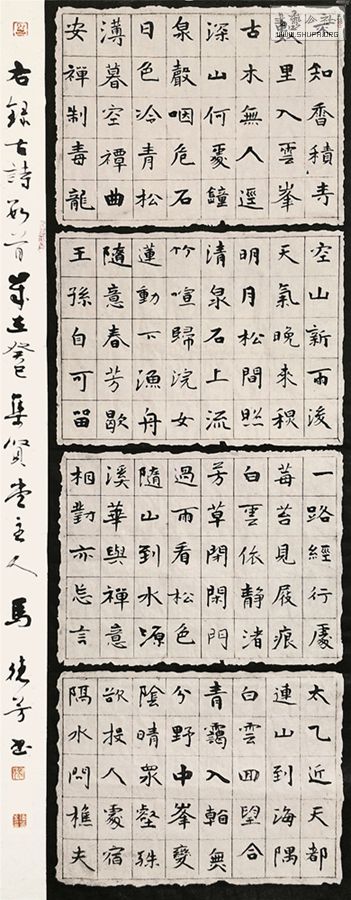 不知香積寺
數里入雲峯
古木無人逕
深山何處鐘
泉聲咽危石
日色冷青松
薄暮空潭曲
安禪制毒龍
空山新雨後
天氣晚來秋
明月松間照
清泉石上流
竹喧歸浣女
蓮動下漁舟
隨意春芳歇
王孫自可留
一路經行處
莓苔見屐痕
白雲依靜渚
芳草閉閑門
過雨看松色
隨山到水源
溪華與禪意
相對亦忘言
太乙近天都
連山到海隅
白雲回望合
青靄入看無
分野中峯變
陰晴眾壑殊
欲投人處宿
隔水問樵夫
右録古詩數首歲在癸巳集賢堂主人馬德芳書